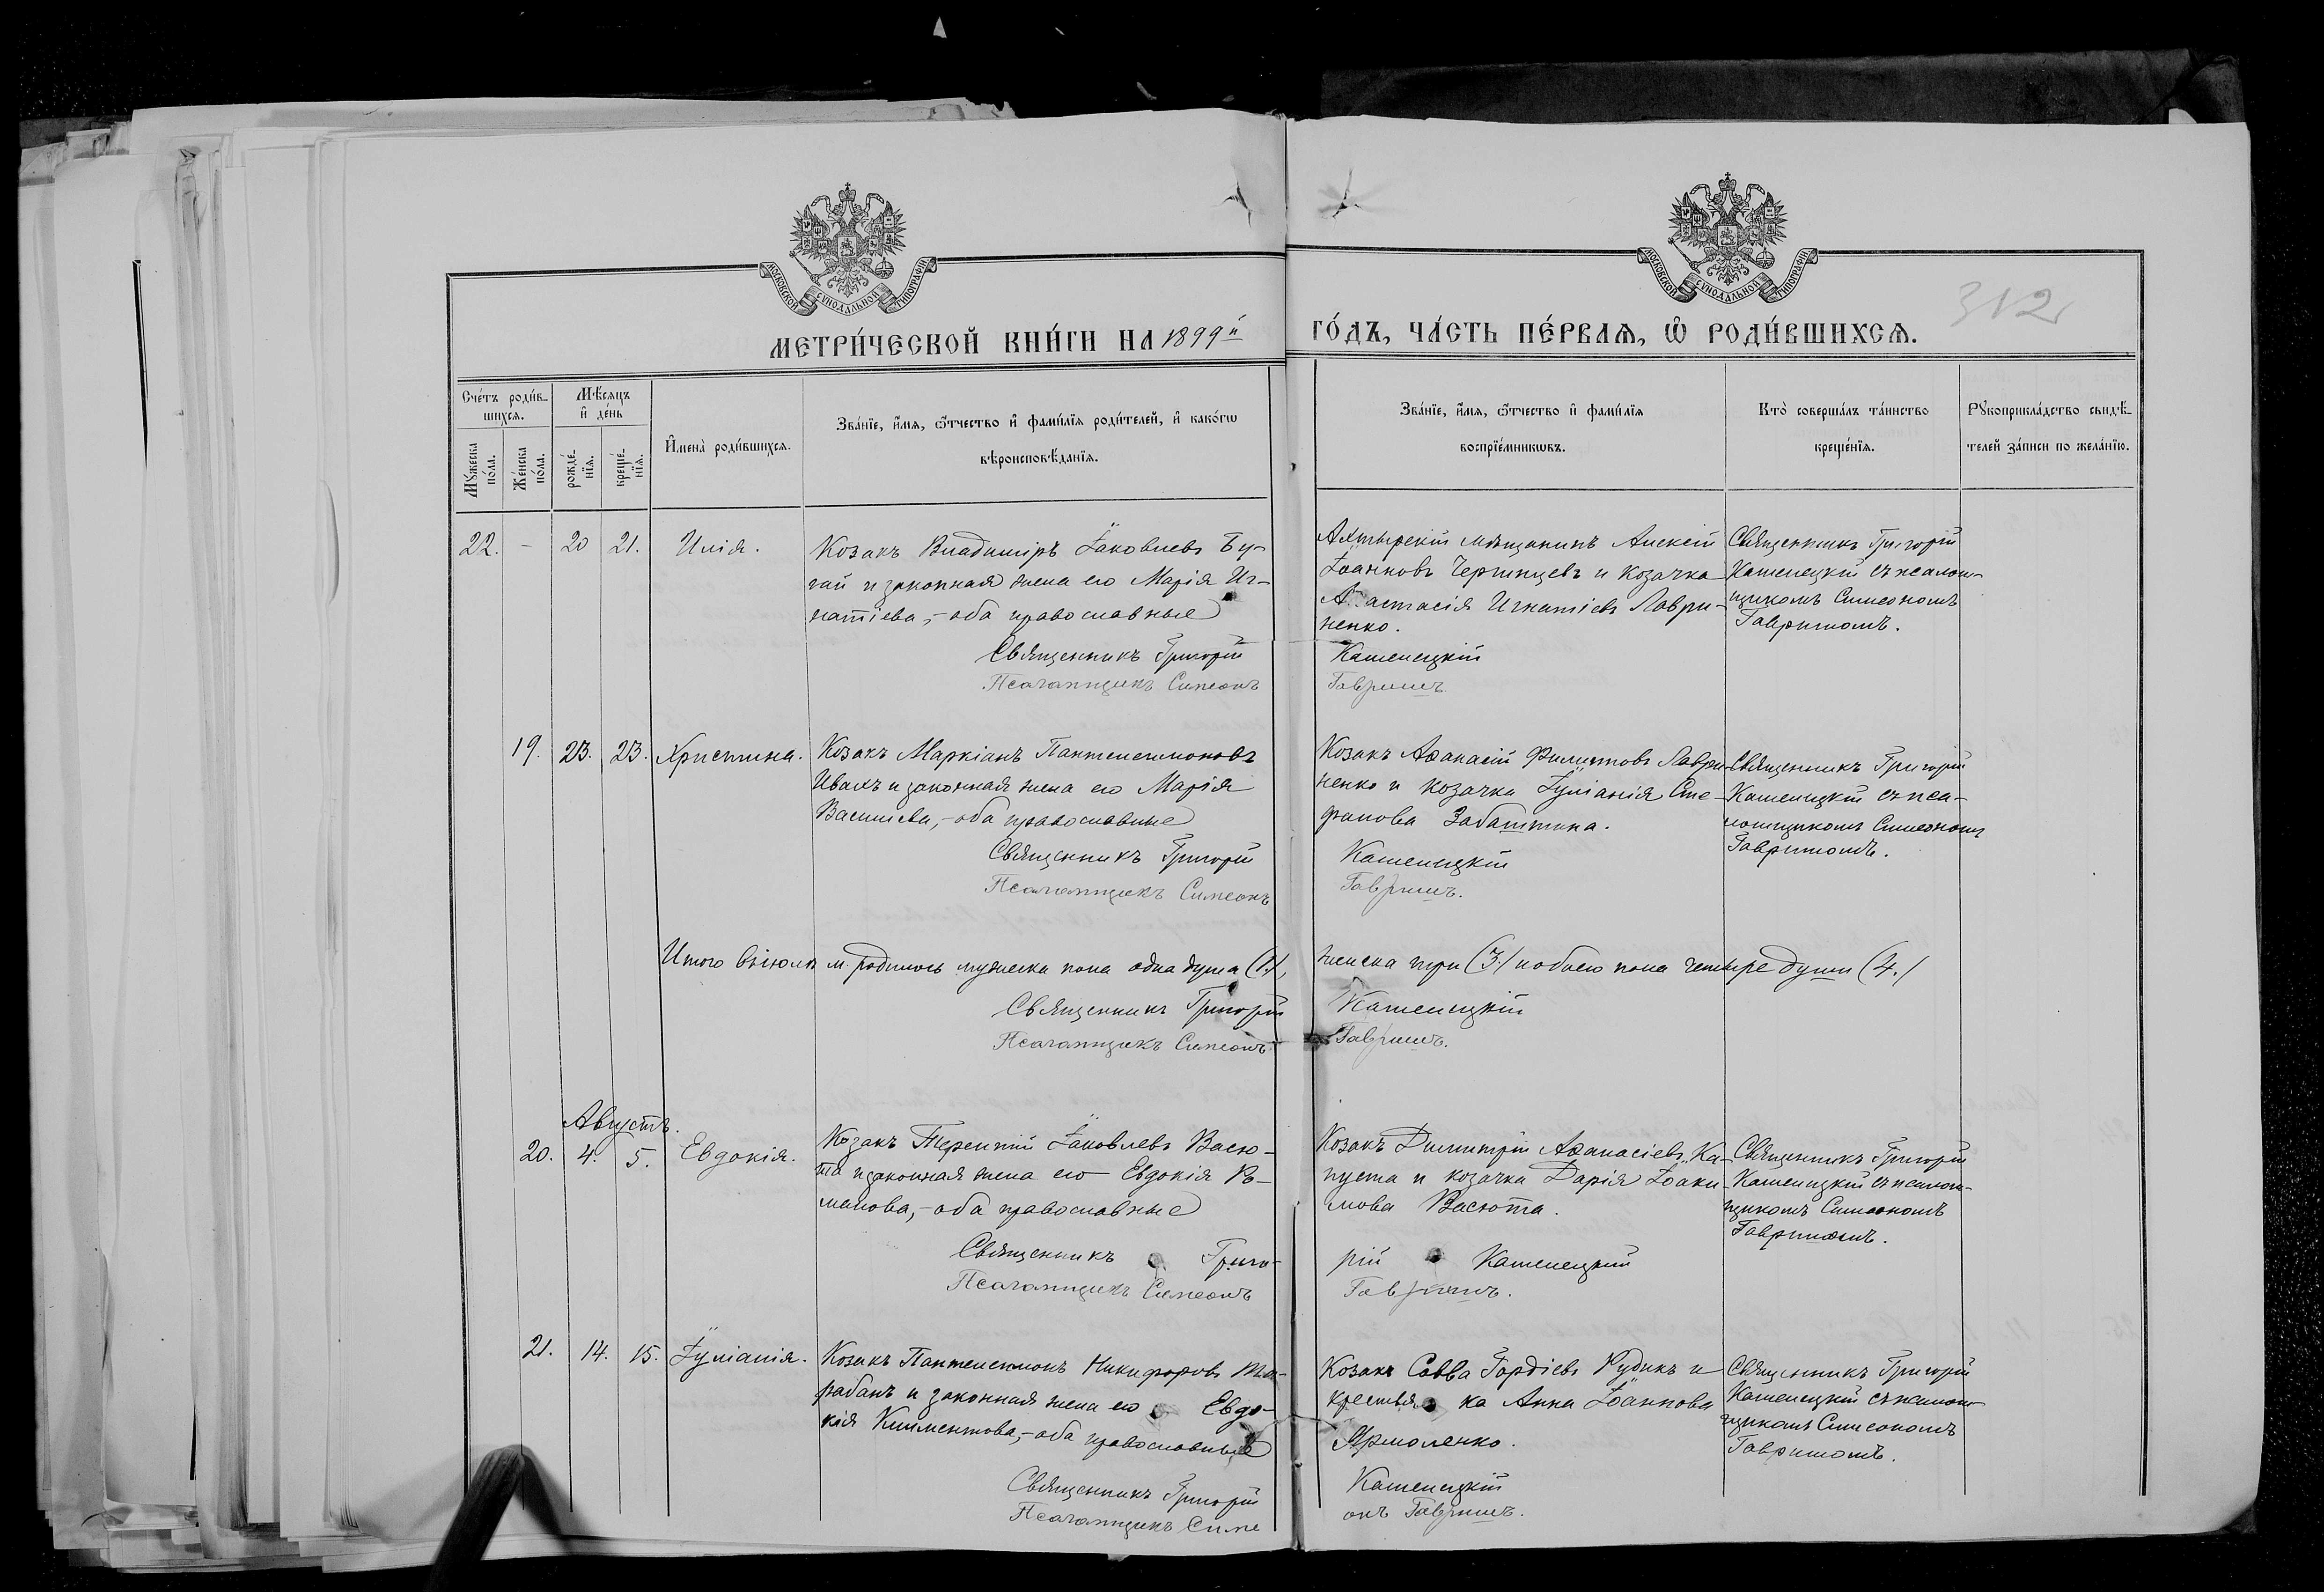 МОСКОВСКОЙ СѴНОДАЛЬНОЙ ТИПОГРАФІИ
МОСКОВСКОЙ СѴНОДАЛЬНОЙ ТИПОГРАФІИ
312
МЕТРИ́ЧЕСКОЙ КНИ́ГИ НА 1899й ГО́ДЪ, ЧА́СТЬ ПЕ́РВАѦ, Ѡ РОДИ́ВШИХСѦ.
Сче́тъ роди́в-
шихсѧ.
Мꙋжеска по́ла.
Же́нска по́ла.
Мѣсѧцъ и де́нь
рожде́-нїѧ.
креще́-нїѧ.
Имена̀ роди́вшихсѧ.
Зва́нїе, и́мѧ, ѻ́тчество и фами́лїѧ роди́телей, и како́гѡ
вѣроисповѣ́данїѧ.
Зва́нїе, и́мѧ, ѻ́тчество и фами́лїѧ
воспрїе́мникѡвъ.
Кто̀ соверша́лъ та́инство
креще́нїѧ.
Рꙋкоприкла́дство свидѣ́-
телей за́писи по жела́нїю.
22. - 20 21. Илія.
Козакъ Владиміръ Іаковлевъ Бу-
гай и законная жена его Марія Иг-
натіева, - оба православные
Священникъ Григорій Каменецкій
Псаломщикъ Симеонъ Гавришъ
Ахтырскій мѣщанинъ Алексій
Іоанновъ Чернцевъ и козачка
Анастасія Игнатіевъ Лаври-
ненко.
Священникъ Григорій
Каменецкій съ псалом-
щикомъ Симеономъ
Гавришомъ.
19. 23. 23. Христина.
Козакъ Маркіанъ Пантелеимоновъ
Ивахъ и законная жена его Марія
Василіева, - оба православные
Священникъ Григорій Каменецкій
Псаломщикъ Симеонъ Гавришъ.
Козакъ Аѳанасій Филипповъ Лаври-
ненко и козачка Іуліанія Сте-
фанова Забаштина.
Священникъ Григорій
Каменецкій съ пса-
ломщикомъ Симеономъ
Гавришомъ.
Итого въ іюлѣ м. родилось мужеска пола одна душа (1.), женска три (3.) и обоего пола четыре души (4.)
Священникъ Григорій Каменецкій
Псаломщикъ Симеонъ Гавришъ.
Августъ.
20. 4. 5. Евдокія.
Козакъ Терентій Іаковлевъ Васю-
та и законная жена его Евдокія Ро-
манова, - оба православные
Священникъ Григо-рій Каменецкій
Псаломщикъ Симеонъ Гавришъ.
Козакъ Димитрій Аѳанасіевъ Ка-
пуста и козачка Дарія Іоаки-
мова Васюта.
Священникъ Григорій
Каменецкій съ псалом-
щикомъ Симеономъ
Гавришомъ.
21. 14. 15. Іуліанія.
Козакъ Пантелеимонъ Никифоровъ Та-
рабанъ и законная жена его Евдо-
кія Климентова, - оба православные
Священникъ Григорій Каменецкій
Псаломщикъ Симе онъ Гавришъ.
Козакъ Савва Гордіевъ Рудикъ и
крестьян ка Анна Іоаннова
Ярмоленко.
Священникъ Григорій
Каменецкій съ псалом-
щикомъ Симеономъ
Гавришомъ.